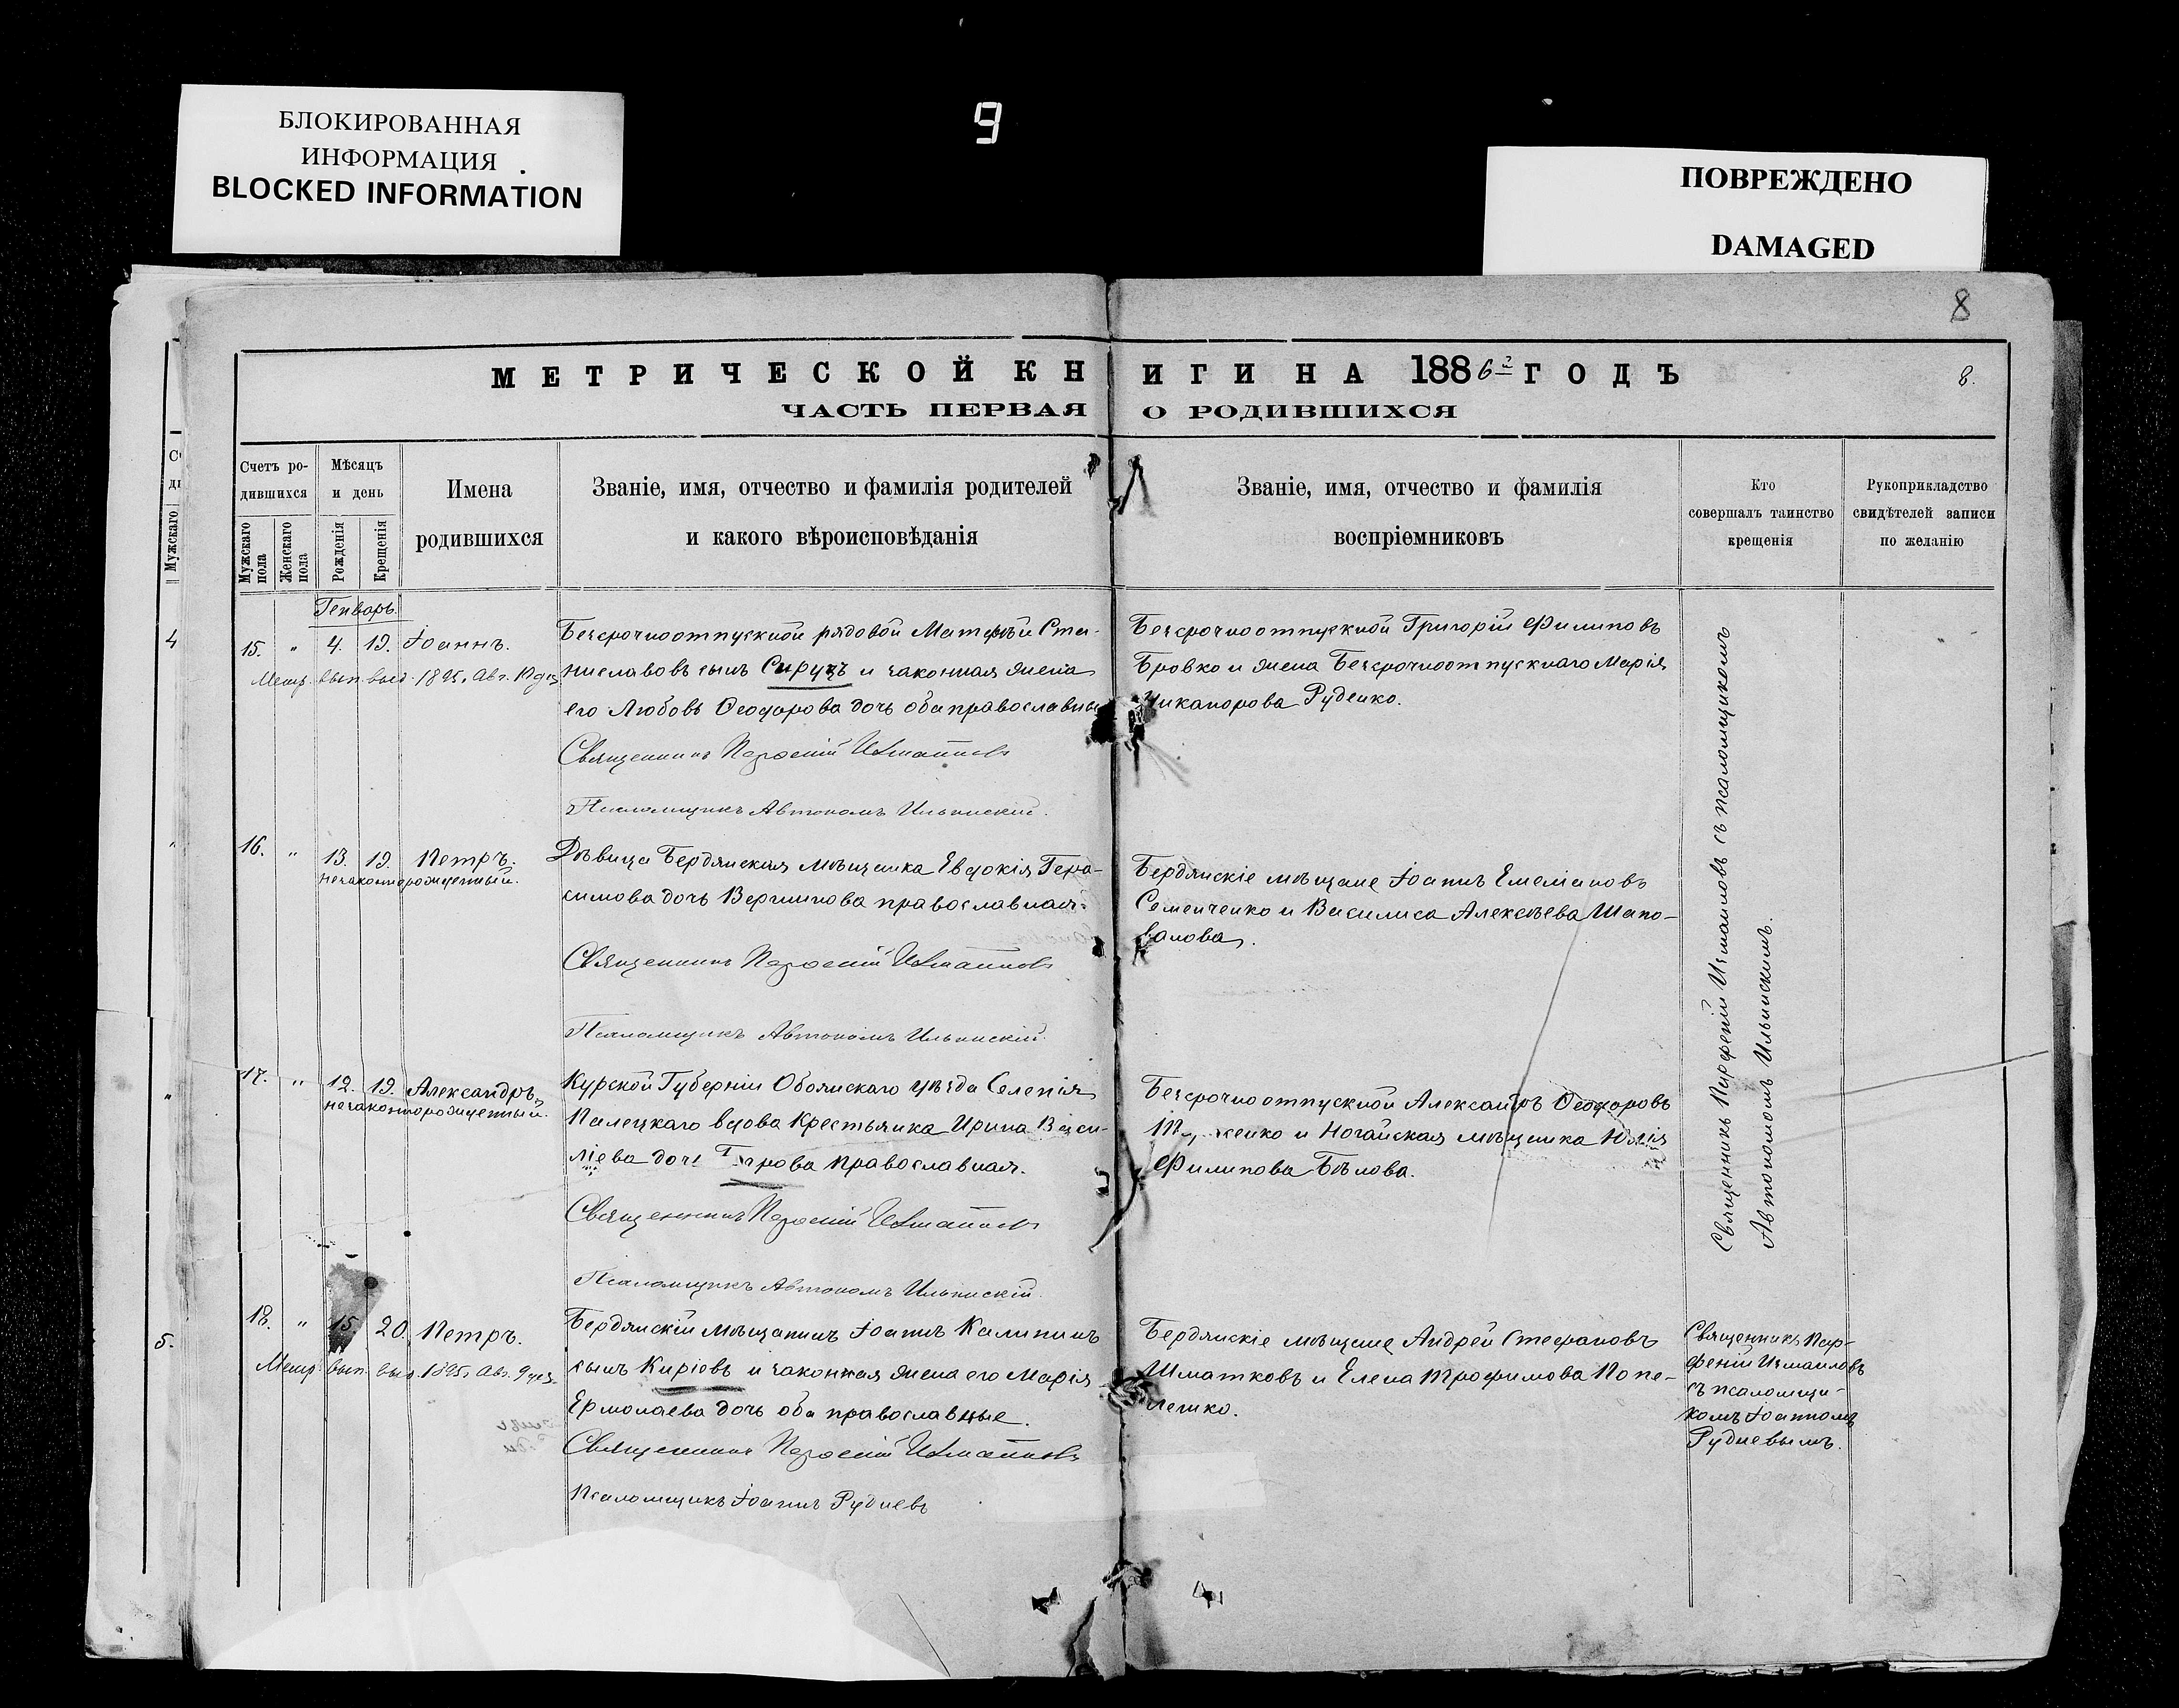 БЛОКИРОВАННАЯ
ИНФОРМАЦИЯ
BLOCKED INFORMATION
9
ПОВРЕЖДЕНО
DAMAGED
8
МЕТРИЧЕСКОЙ КНИГИ НА 1886 й ГОДЪ
8.
ЧАСТЬ ПЕРВАЯ О РОДИВШИХСЯ
Счетъ ро-
дившихся
Мужскаго пола
Женскаго пола
Мѣсяцъ
и день
Рожденія
Крещенія
Имена
родившихся
Званіе, имя, отчество и фамилія родителей
и какого вѣроисповѣданія
Званіе, имя, отчество и фамилія
воспріемниковъ
Кто
совершалъ таинство
крещенія
Рукоприкладство
свидѣтелей записи
по желанію
Мужскаго
4
5.
Генварь.
15. " 4. 19. Іоаннъ.
Метр. вып. выд. 1895 г. Авг.
Безсрочноотпускной рядовой Матфѣй Ста-
ниславовъ сынъ Сируцъ и законная жена
его Любовь Ѳеодорова дочь оба православны
Священникъ Парѳеній Измаиловъ
Псаломщикъ Автономъ Ильинскій.
Безсрочноотпускной Григорій Филиповъ
Бровко и жена Безсрочноотпускнаго Марія
Никанорова Руденко.
Священникъ Парфеній Измаиловъ съ псаломщикомъ
Автономомъ Ильинскимъ.
16. " 13. 19. Петръ.
незаконнорожденный.
Дѣвица Бердянская мѣщанка Евдокія Гера-
симова дочь Вершинова православная.
Священникъ Парѳеній Измаиловъ
Псаломщикъ Автономъ Ильинскій.
Бердянскіе мѣщане Іоаннъ Емеліановъ
Семенченко и Василиса Алексѣева Шапо-
валова.
17. " 12. 19. Александръ,
незаконнорожденный.
Курской Губерніи Обоянскаго уѣзда Селенія
Палецкаго вдова Крестьянка Ирина Васи-
ліева дочь православная.
Священникъ Парѳеній Измаиловъ
Псаломщикъ Автономъ Ильинскій.
Безсрочноотпускной Александръ Ѳеодоровъ
и Ногайская мѣщанка Юлія
Филипова Бѣлова.
18. " 15. 20. Петръ.
Метр. вып. выд. 1895 г. Авг. 9 дня.
Бердянскій мѣщанинъ Іоаннъ Калининъ
сынъ Киріевъ и законная жена его Марія
Ермолаева дочь оба православные.
Священникъ Парѳеній Измаиловъ
Псаломщикъ Іоаннъ Рудневъ
Бердянскіе мѣщане Андрей Стефановъ
Шматковъ и Елена Трофимова Попе-
лешко.
Священникъ Пар-
феній Измаиловъ
съ псаломщи-
комъ Іоанномъ
Рудневымъ.